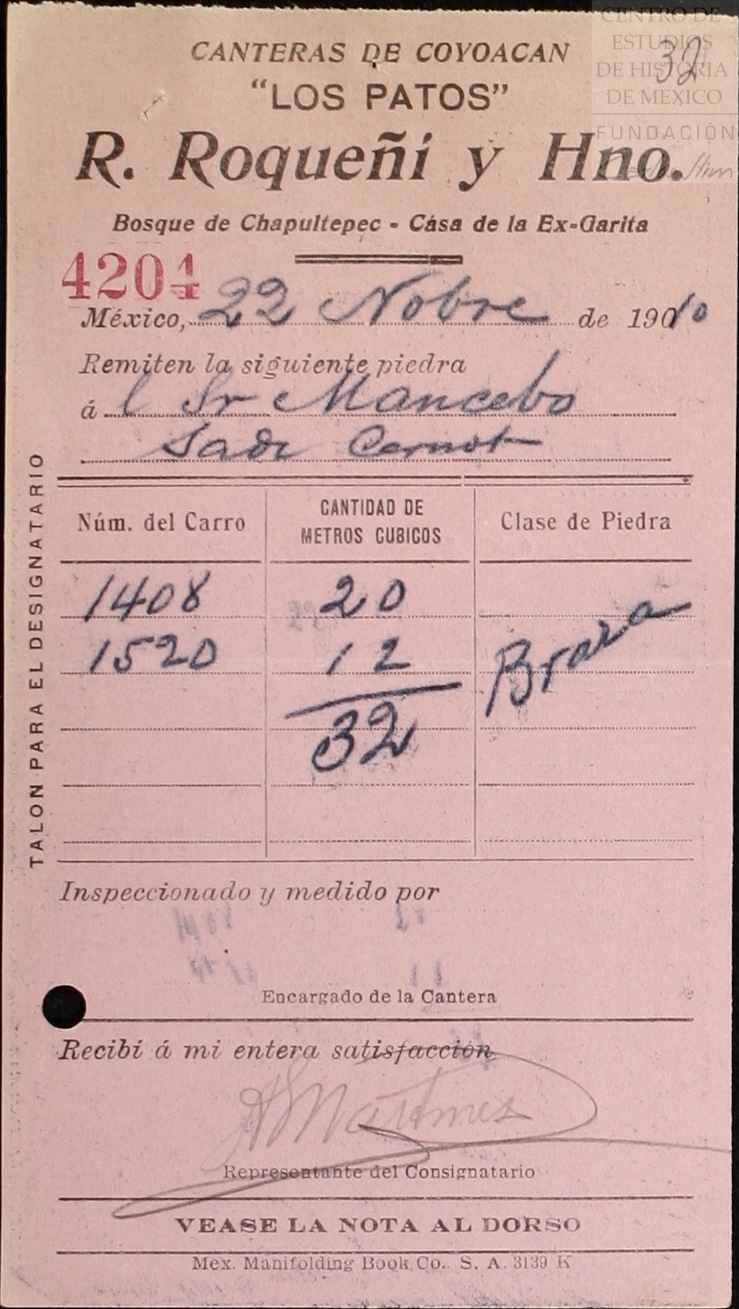 CENTRO DE
ESTUDIOS
DE HISTORIA
DE MEXICO
FUNDACIÓN
32
CANTERAS DE COYOACAN
"LOS PATOS"
R. Roqueñí y Hno.
Bosque de Chapultepec - Casa de la Ex-Garita
4204
México, 22 Nobre de 1910
Remiten la siguiente piedra
á l Sr Mancebo
Sadi Carnot
TALON PARA EL DESIGNATARIO
Núm. del Carro CANTIDAD DE METROS CUBICOS Clase de Piedra
1408 20
1520 12 Braza
32
Inspeccionado y medido por
Encargado de la Cantera
Recibí á mi entera satisfacción
Martínez
Representante del Consignatario
VEASE LA NOTA AL DORSO
Mex. Manifolding Book Co. S. A. 3139 K